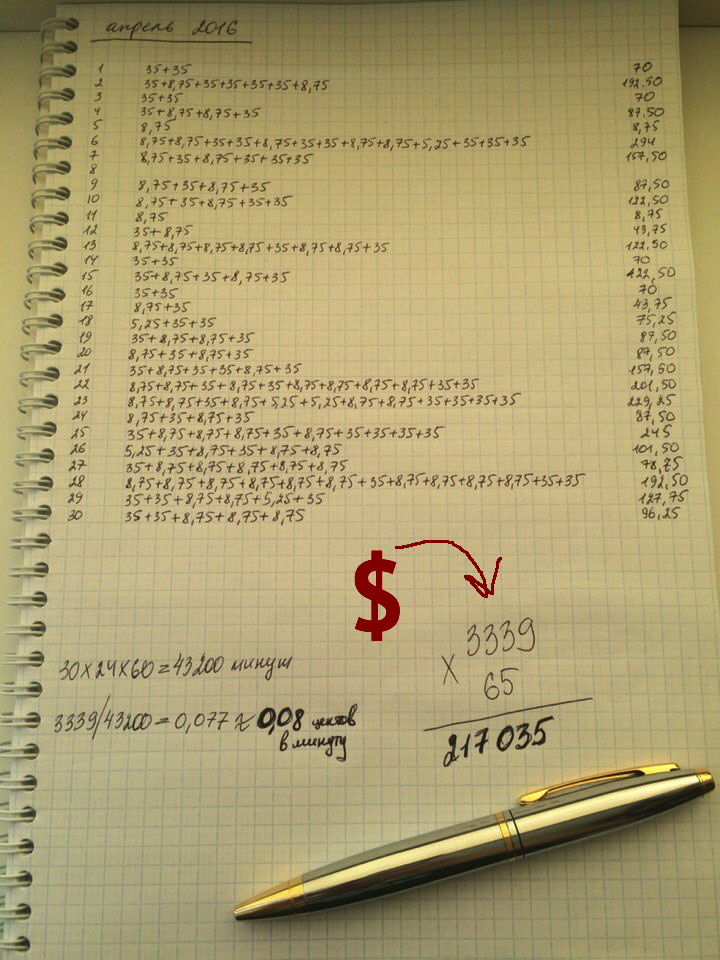 апрель 2016
1 35+35 70
2 35+8,75+35+35+35+35+8,75 192.50
3 35+35 70
4 35+8,75+8,75+35 87.50
5 8,75 8,75
6 8,75+8,75+35+35+8,75+35+35+8,75+8,75+5,25+35+35+35 294
7 8,75+35+8,75+35+35+35 157,50
8
9 8,75+35+8,75+35 87,50
10 8,75+35+8,75+35+35 122,50
11 8,75 8,75
12 35+8,75 43,75
13 8,75+8,75+8,75+8,75+35+8,75+8,75+35 122.50
14 35+35 70
15 35+8,75+35+8,75+35 122,50
16 35+35 70
17 8,75+35 43,75
18 5,25+35+35 75,25
19 35+8,75+8,75+35 87,50
20 8,75+35+8,75+35 87,50
21 35+8,75+35+35+8,75+35 157,50
22 8,75+8,75+35+8,75+35+8,75+8,75+8,75+8,75+35+35 201,50
23 8,75+8,75+35+8,75+5,25+5,25+8,75+8,75+35+35+35+35 229,25
24 8,75+35+8,75+35 87,50
25 35+8,75+8,75+8,75+35+8,75+35+35+35+35 245
26 5,25+35+8,75+35+8,75+8,75 101,50
27 35+8,75+8,75+8,75+8,75+8,75 78,75
28 8,75+8,75+8,75+8,75+8,75+8,75+35+8,75+8,75+8,75+8,75+35+35 192,50
29 35+35+8,75+8,75+5,25+35 127,75
30 35+35+8,75+8,75+8,75 96,25
$
3339
x 65
217035
30x24x60=43200 минут
3339/43200=0,077≈0,08 центов
в минуту